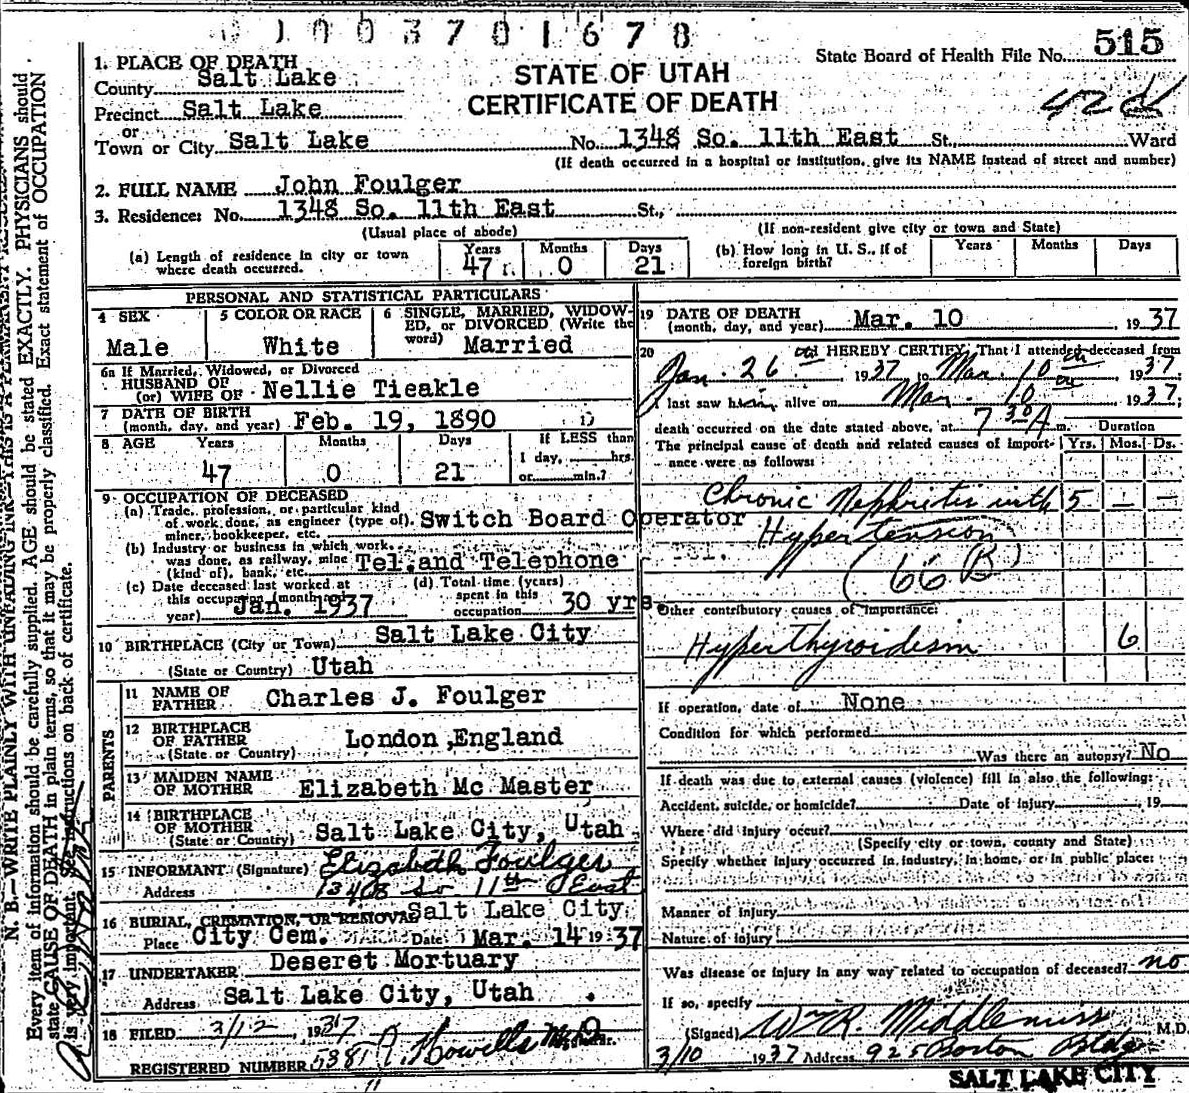 1003701678
State Board of Health File No. 515
1. PLACE OF DEATH
STATE OF UTAH
CERTIFICATE OF DEATH
42d
County Salt Lake
Precinct Salt Lake
or
Town or City Salt Lake No. 1348 So. 11th East St., Ward
(If death occurred in a hospital or institution, give its NAME instead of street and number)
2. FULL NAME John Foulger
3. Residence: No. 1348 So. 11th East St.,
(Usual place of abode) (If non-resident give city or town and State)
(a) Length of residence in city or town where death occurred. Years 47 Months 0 Days 21
(b) How long in U. S., if of foreign birth? Years Months Days
PERSONAL AND STATISTICAL PARTICULARS
4 SEX Male
5 COLOR OR RACE White
6 SINGLE, MARRIED, WIDOWED, or DIVORCED (Write the word) Married
6a If Married, Widowed, or Divorced
HUSBAND OF
(or) WIFE OF Nellie Tieakle
7 DATE OF BIRTH
(month, day, and year) Feb. 19, 1890
8 AGE Years 47 Months 0 Days 21 If LESS than 1 day, hrs. or min.?
9 OCCUPATION OF DECEASED
(a) Trade, profession, or particular kind of work done, as engineer (type of), miner, bookkeeper, etc. Switch Board Operator
(b) Industry or business in which work was done, as railway, mine (kind of), bank, etc. Tel. and Telephone
(c) Date deceased last worked at this occupation (month and year) Jan. 1937
(d) Total time (years) spent in this occupation 30 yrs.
10 BIRTHPLACE (City or Town) Salt Lake City
(State or Country) Utah
PARENTS
11 NAME OF FATHER Charles J. Foulger
12 BIRTHPLACE OF FATHER
(State or Country) London, England
13 MAIDEN NAME OF MOTHER Elizabeth Mc Master
14 BIRTHPLACE OF MOTHER
(State or Country) Salt Lake City, Utah
15 INFORMANT (Signature) Elizabeth Foulger
Address 1348 So 11th East
16 BURIAL, CREMATION, OR REMOVAL Salt Lake City
Place City Cem. Date Mar. 14 1937
17 UNDERTAKER Deseret Mortuary
Address Salt Lake City, Utah
18 FILED 3/12, 1937 Howells M.D.
REGISTERED NUMBER 5381
19 DATE OF DEATH
(month, day, and year) Mar. 10, 1937
20 I HEREBY CERTIFY, That I attended deceased from
Jan. 26, 1937 to Mar. 10, 1937.
I last saw him alive on Mar. 10, 1937;
death occurred on the date stated above, at 7 30 A m. Duration
The principal cause of death and related causes of importance were as follows: Yrs. Mos. Ds.
Chronic Nephritis with 5 — —
Hypertension
(66 B)
Other contributory causes of importance:
Hyperthyroidism 6
If operation, date of None
Condition for which performed
Was there an autopsy? No
If death was due to external causes (violence) fill in also the following:
Accident, suicide, or homicide? Date of injury , 19
Where did injury occur?
(Specify city or town, county and State)
Specify whether injury occurred in industry, in home, or in public place:
Manner of injury
Nature of injury
Was disease or injury in any way related to occupation of deceased? no
If so, specify
(Signed) Wm R. Middlemiss M.D.
3/10 1937 Address 925 Boston Bldg
SALT LAKE CITY
N. B.—WRITE PLAINLY WITH UNFADING INK—THIS IS A PERMANENT RECORD
Every item of information should be carefully supplied. AGE should be stated EXACTLY. PHYSICIANS should
state CAUSE OF DEATH in plain terms, so that it may be properly classified. Exact statement of OCCUPATION
is very important. See instructions on back of certificate.